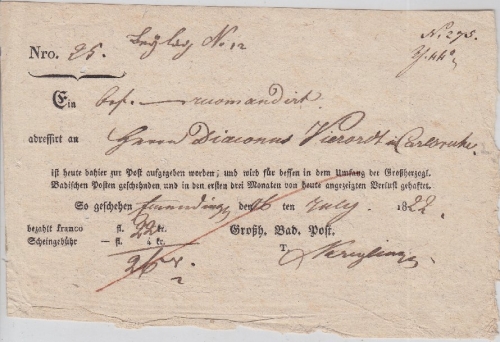 No 275.
Beylag No 12
Nro. 25.
Ein bes. recomandirt.
adressirt an Herrn Diaconus Vierordt in Carlsruhe
ist heute dahier zur Post aufgegeben worden, und wird für dessen in dem Umfang der Großherzogl.
Badischen Posten geschehnden und in den ersten drei Monaten von heute angezeigten Verlust gehaftet.
So geschehen den 26 ten July 1822.
bezahlt franco — fl. 22 kr. Großh. Bad. Post.
Scheingebühr — fl. 4 kr. T.
26 kr.